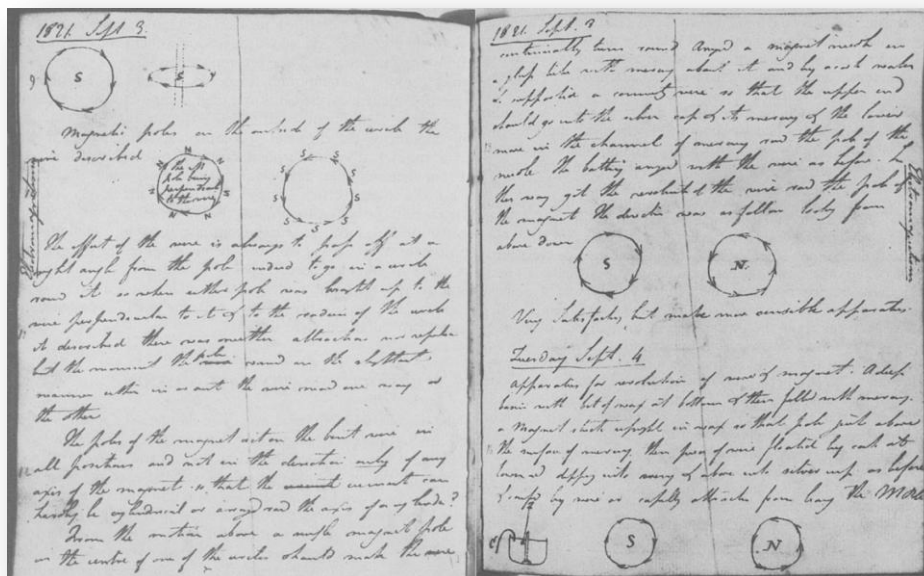 1821. Sept 3.
S
S
Magnetic poles on the outside of the circle the
wire described
N N N N N N N
the N pole being perpendicular to the ring
S S S S S S S S S
The effort of the wire is always to pass off at a
right angle from the pole indeed to go in a circle
round it so when either pole was brought up to the
wire perpendicular to it & to the radius of the circle
it described there was neither attraction nor repulsion
but the moment the pole varied in the slightest
manner either in or out the wire moved one way or
the other
The poles of the magnet act on the bent wire in
all positions and not in the direction only of any
axis of the magnet so that the current can
hardly be cylindrical or arranged round the axis of a cylinder?
From the motion above a single magnet pole
in the centre of one of the circles should make the wire
Electromagnetism
1821. Sept. 3
continually turn round. Arranged a magnet needle in
a glass tube with mercury about it and by a cork water
&c supported a connecting wire so that the upper end
should go into the silver cup & its mercury & the lower
move in the channel of mercury round the pole of the
needle. The battery arranged with the wire as before. In
this way got the revolution of the wire round the pole of
the magnet. The direction was as follows looking from
above down
S
N
Very Satisfactory, but make more sensible apparatus.
Tuesday Sept. 4
Apparatus for revolution of wire & magnet. A deep
basin with bit of wax at bottom & then filled with mercury.
a Magnet stuck upright in wax so that pole just above
the surface of mercury. then piece of wire floated by cork at
lower end dipping into mercury & above into silver cup as before
S
N
Electromagnetism